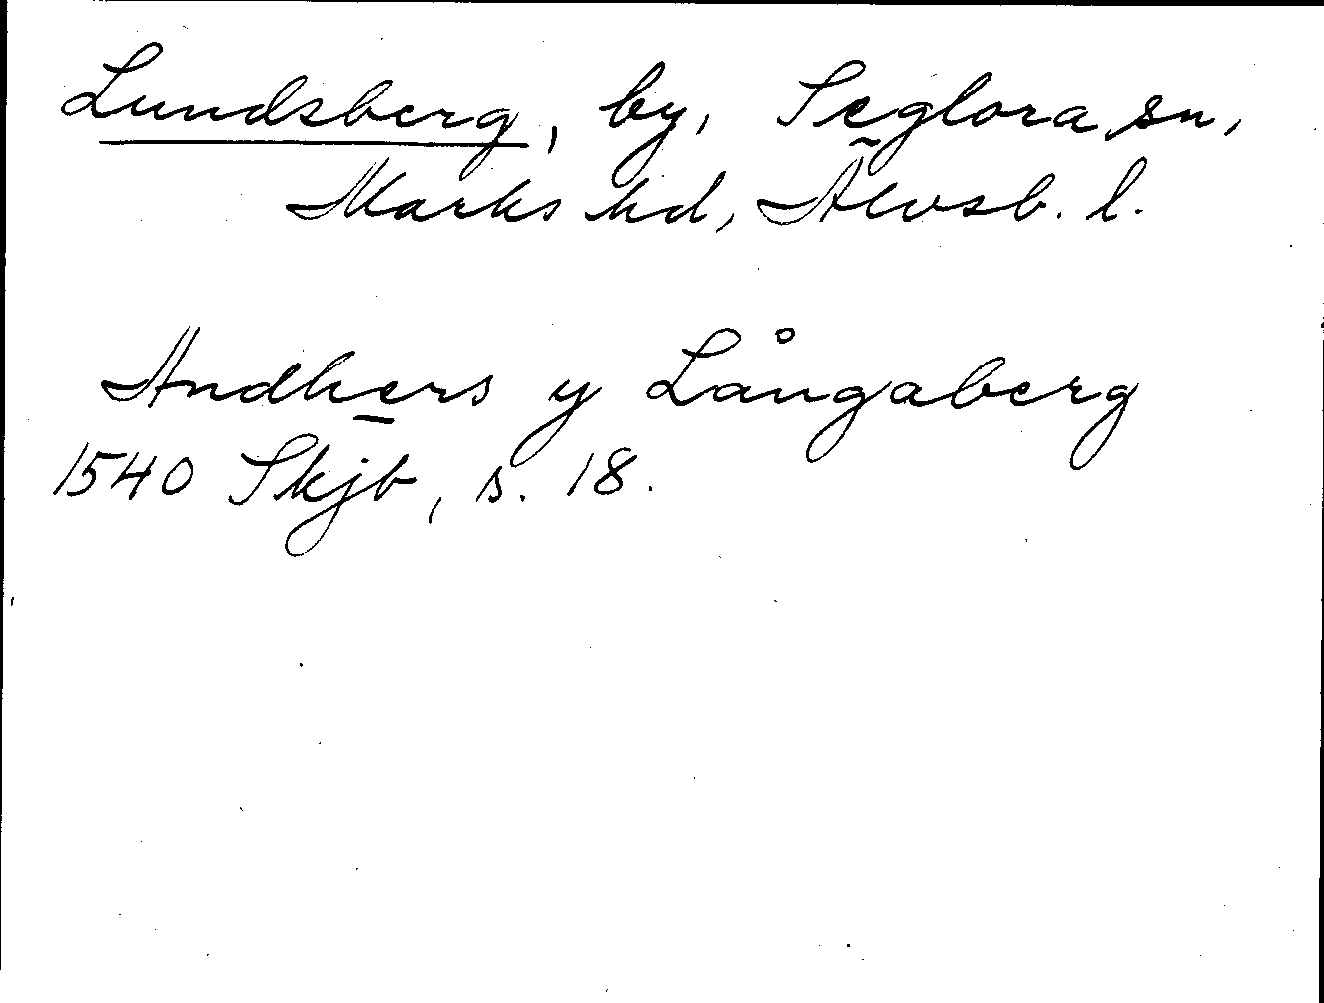 Lundsberg, by, Seglora sn,
Marks hd, Älvsb. l.
Andhers y Långaberg
1540 Skjb, s. 18.